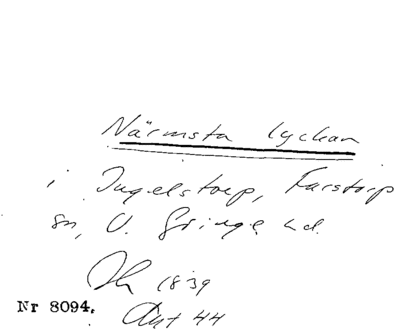 Närmsta lyckan
i Ingelstorp, Farstorp
sn, V. Göinge hd.
1839
Nr 8094.
Ant 44